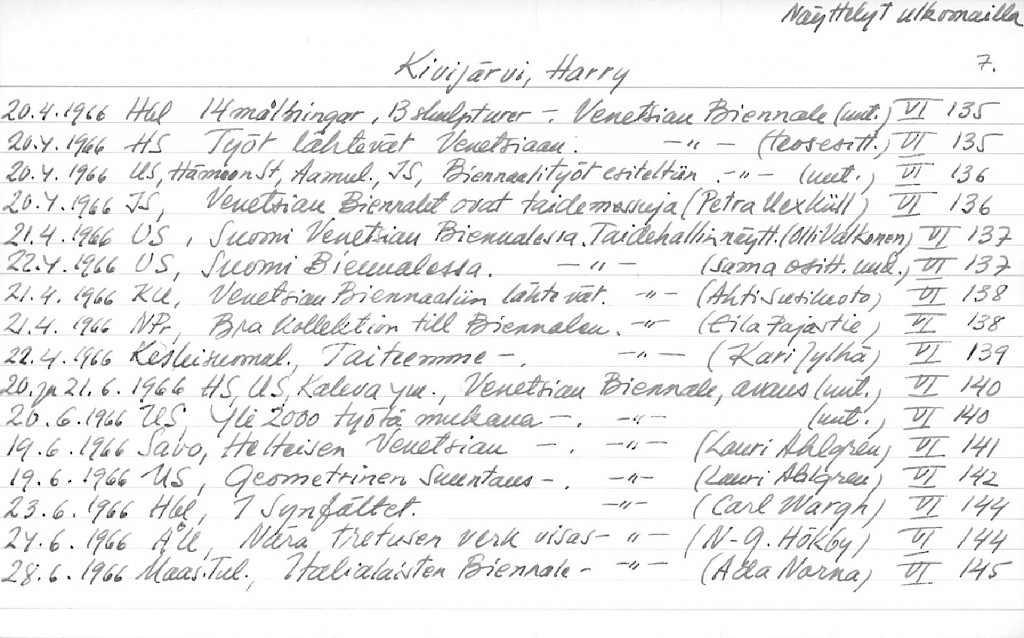 Näyttelyt ulkomailla
7.
Kivijärvi, Harry
20.4.1966 Hbl 14 målningar, 13 skulpturer - . Venetsian Biennale (uut.) VI 135
20.4.1966 HS Työt lähtevät Venetsiaan. -"- (teosesitt.) VI 135
20.4.1966 US, HämeenSt, Aamul., IS, Biennaalityöt esiteltiin . -"- (uut.) VI 136
20.4.1966 IS, Venetsian Biennalet ovat taidemessuja (Petra Uexküll) VI 136
21.4.1966 US, Suomi Venetsian Biennalessa. Taidehallin näytt. (Olli Valkonen) VI 137
22.4.1966 US, Suomi Biennalessa. -"- (sama ositt. uud.) VI 137
21.4.1966 KU, Venetsian Biennaaliin lähtevät. -"- (Ahti Susiluoto) VI 138
21.4.1966 NPr, Bra kollektion till Biennalen. -"- (Eila Pajastie) VI 138
22.4.1966 Keskisuomal., Taiteemme - . -"- (Kari Jylhä) VI 139
20. ja 21.6.1966 HS, US, Kaleva ym., Venetsian Biennale, avaus (uut.) VI 140
20.6.1966 US, Yli 2000 työtä mukana - . -"- (uut.) VI 140
19.6.1966 Savo, Helteisen Venetsian - . -"- (Lauri Ahlgren) VI 141
19.6.1966 US, Geometrinen Suuntaus - . -"- (Lauri Ahlgren) VI 142
23.6.1966 Hbl, I Synfältet. -"- (Carl Wargh) VI 144
27.6.1966 ÅU, Nära tretusen verk visas - -"- (N-G. Hökby) VI 144
28.6.1966 Maas.Tul., Italialaisten Biennale - -"- (Aila Norna) VI 145